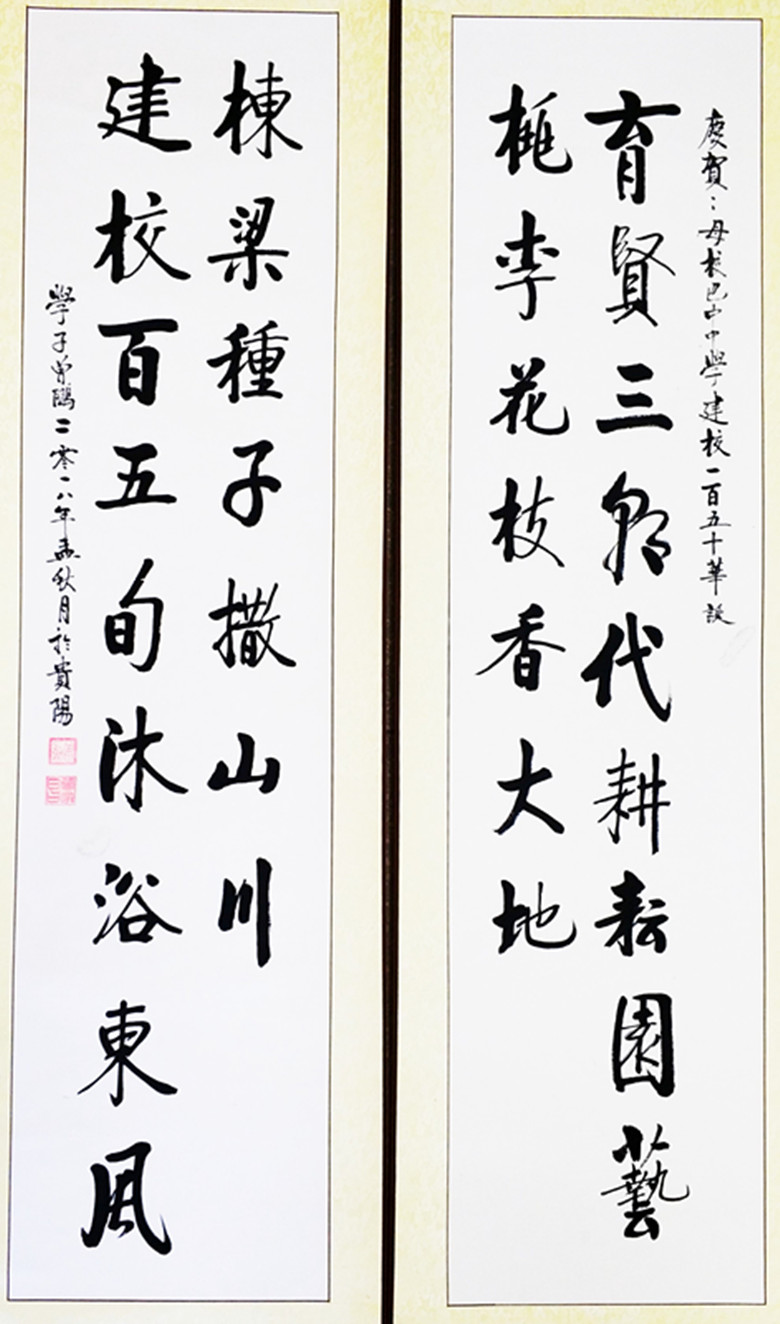 慶賀：母校巴中中學建校一百五十華誕
育賢三朝代耕耘園藝
桃李花枝香大地
棟梁種子撒山川
建校百五旬沐浴東風
學子曾鷗二零一八年孟秋月於貴陽